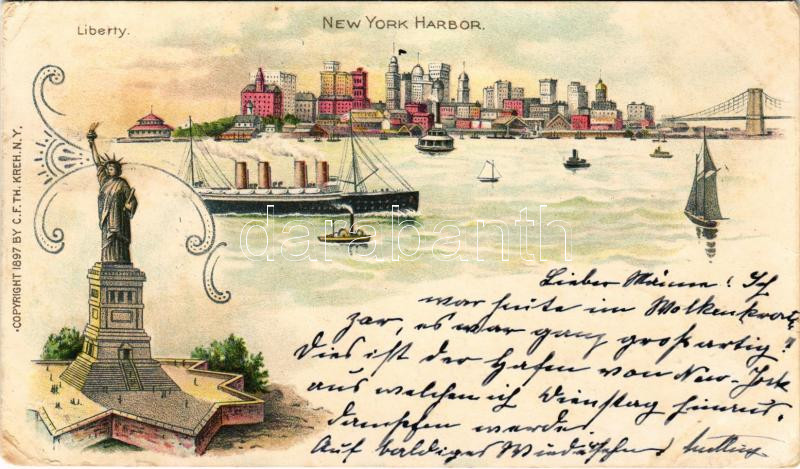 Liberty.
NEW YORK HARBOR.
·COPYRIGHT 1897 BY C.F.TH. KREH. N.Y.
darabanth
Lieber Männe! Ich
war heute im Wolkenkrat-
zer, es war ganz großartig!
Dies ist der Hafen von New-York
aus welchen ich Dienstag hinaus-
dampfen werde.
Auf baldiges Wiedersehn